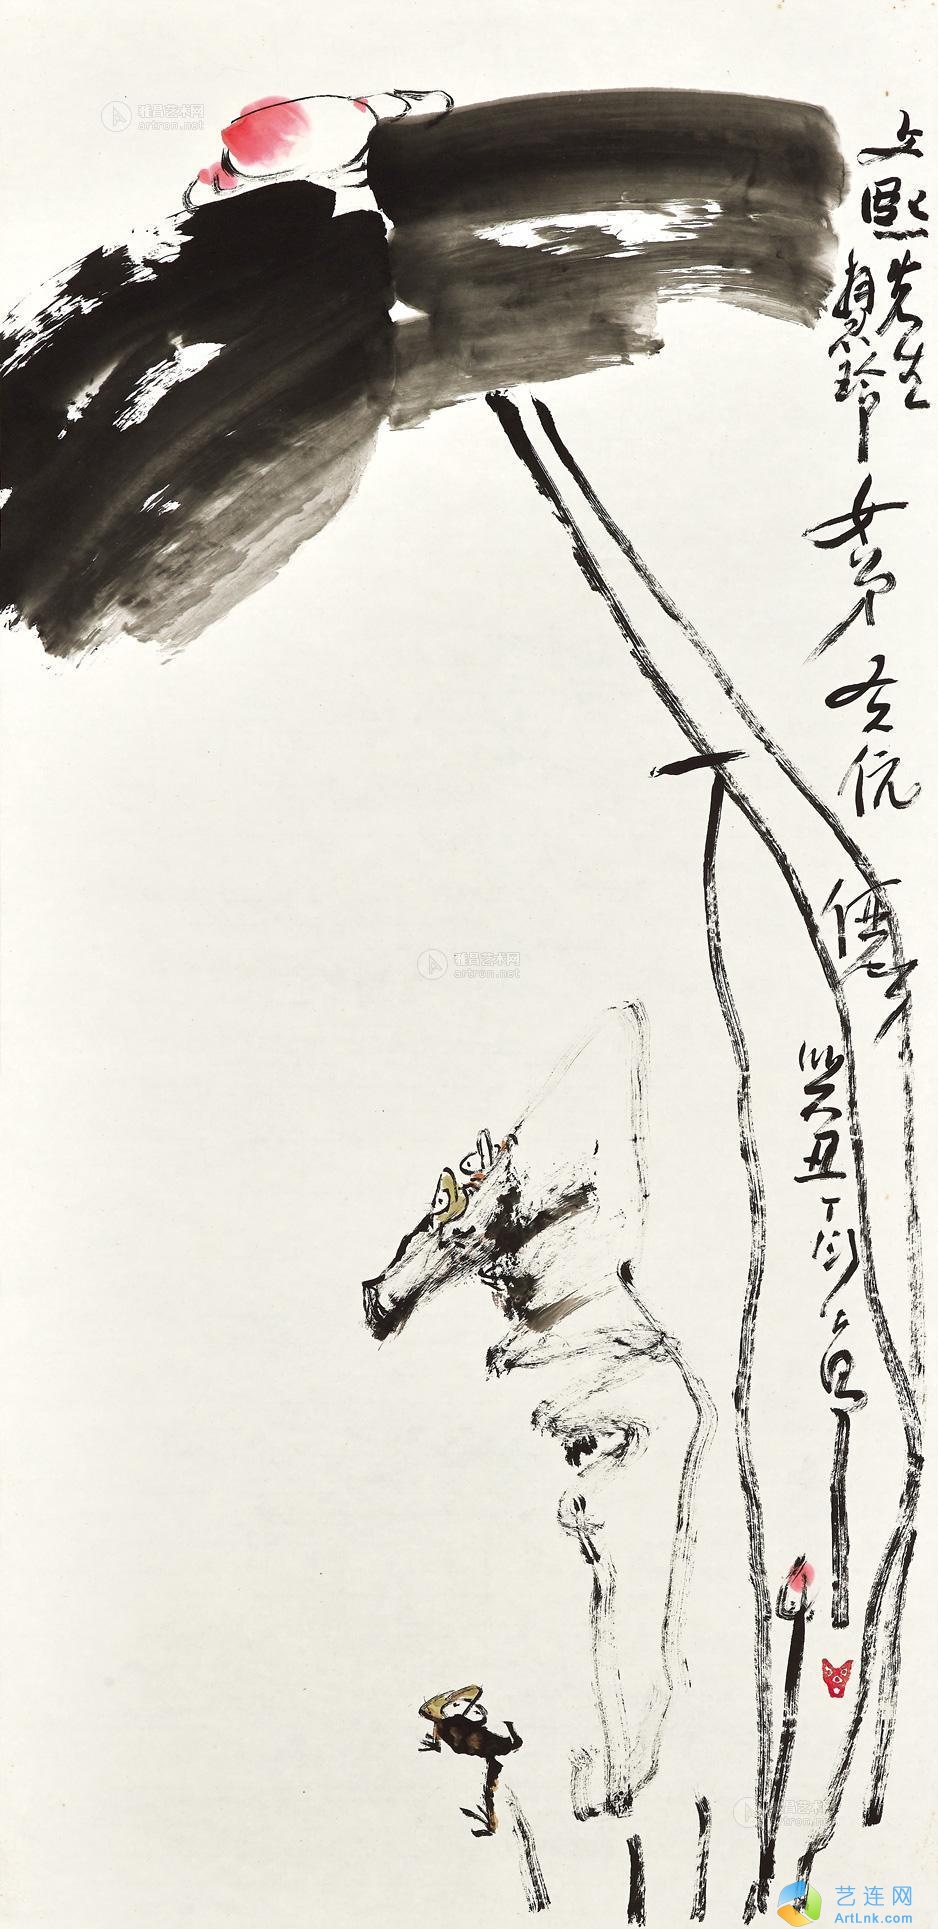 文熙先生
慧玲女弟
俪
癸丑丁衍庸
雅昌艺术网
artron.net
雅昌艺术网
artron.net
雅昌艺术网
artron.net
艺连网
ArtLnk.com